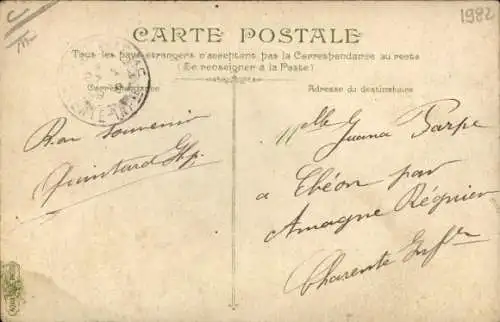 1982
CARTE POSTALE
Tous les pays étrangers n'acceptent pas la Correspondance au recto
(Se renseigner à la Poste)
Correspondance
Adresse du destinataire
Bon souvenir
Quintard Hp.
Mlle Juana Parpe
a Théon par
Amagne Régnier
Charente Infre